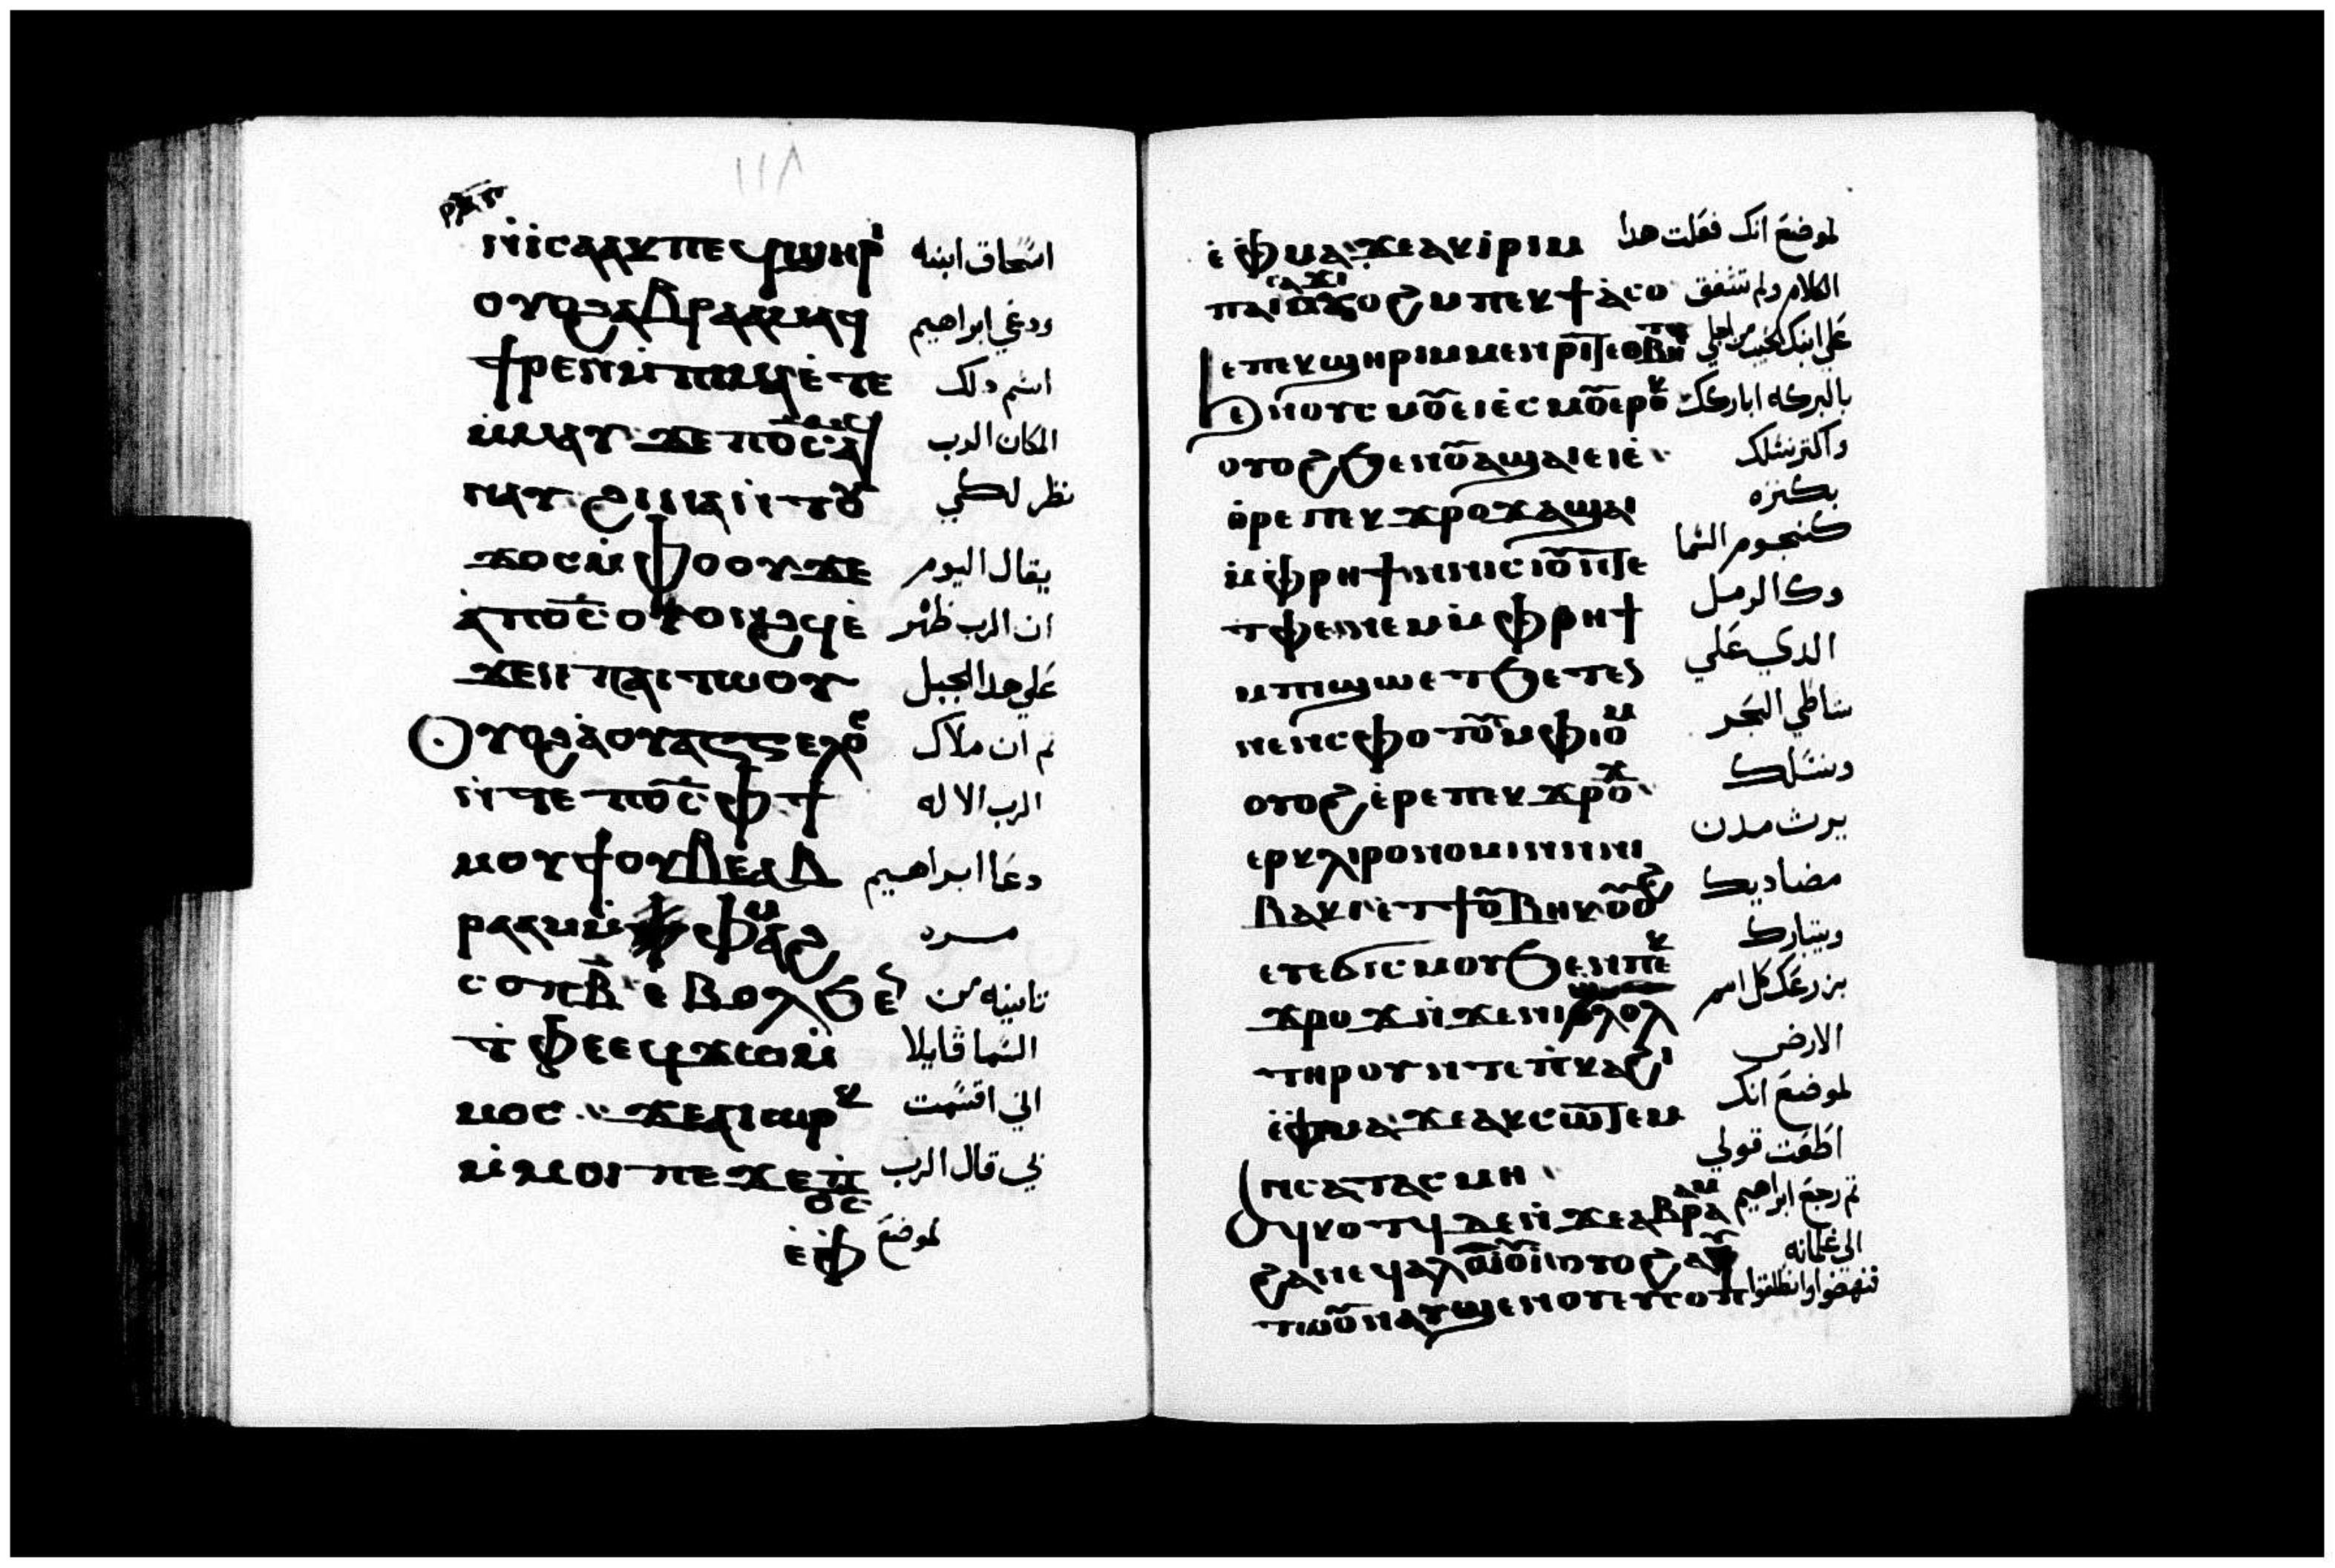 ١١٨
ⲛ̇ⲓⲥⲁⲁⲕ ⲡⲉϥϣⲏⲣⲓ اسحاق ابنه
ⲟⲩⲟϩ ⲁⲃⲣⲁⲁⲙ ⲁϥ ودعي ابراهيم
ϯⲣⲉⲛ ⲙ̇ⲡⲓⲙⲁ ⲉ̇ⲧⲉ اسم دلك
ⲙ̇ⲙⲁⲩ ϫⲉ ⲡⲟ̅ⲥ̅ ⲁϥ المكان الرب
ⲛⲁⲩ ϩⲓⲛⲁ ⲛ̇ⲧⲟⲩ نظر لكي
ϫⲟⲥ ⲙ̇ⲫⲟⲟⲩ ϫⲉ يقال اليوم
ⲁ̇ ⲡⲟ̅ⲥ̅ ⲟⲩⲟⲛϩϥ ⲉ̇ ان الرب ظهر
ϫⲉⲛ ⲡⲁⲓⲧⲱⲟⲩ علي هدا الجبل
ⲟⲩⲟϩ ⲁ̇ ⲟⲩⲁⲅⲅⲉⲗⲟⲥ تم ان ملاك
ⲛ̇ⲧⲉ ⲡⲟ̅ⲥ̅ ⲫϯ الرب الاله
ⲙⲟⲩϯ ⲟⲩⲃⲉ ⲁⲃ دعا ابراهيم
ⲣⲁⲁⲙ ⲙ̇ⲫⲙⲁϩ مره
ⲥⲟⲡ ⲃ̅ ⲉ̇ⲃⲟⲗ ϧⲉⲛ تانيه من
ⲧ̇ⲫⲉ ⲉϥϫⲱ ⲙ̇ السما قايلا
ⲙⲟⲥ ϫⲉ ⲁⲓⲱⲣⲕ اني اقسمت
ⲙ̇ⲙⲟⲓ ⲡⲉϫⲉ ⲡ̅ⲟ̅ⲥ̅ بي قال الرب
ⲉ̇ⲫ لموضع
ⲉ̇ⲫⲙⲁ ϫⲉ ⲁⲕⲓ̇ⲣⲓ ⲙ لموضع انك فعلت هدا
ⲡⲁⲓⲥⲁϫⲓ ⲟⲩⲟϩ ⲙⲡⲉⲕϯⲁ̇ⲥⲟ الكلام ولم تشفق
ⲉⲡⲉⲕϣⲏⲣⲓ ⲙⲙⲉⲛⲣⲓⲧ ⲉⲑⲃⲏⲧ علي ابنك الحبيب من اجلي
ϧⲉⲛ ⲟⲩⲥⲙⲟⲩ ⲉⲓⲉ̇ⲥⲙⲟⲩ ⲉⲣⲟⲕ بالبركه اباركك
ⲟⲩⲟϩ ϧⲉⲛ ⲟⲩⲁϣⲁⲓ ⲉⲓⲉ̇ واكتر نسلك
ⲑⲣⲉ ⲡⲉⲕϫⲣⲟϫ ⲁϣⲁⲓ بكتره
ⲙ̇ⲫⲣⲏϯ ⲛⲛⲓⲥⲓⲟⲩ ⲛⲧⲉ كنجوم السما
ⲧⲫⲉ ⲛⲉⲙ ⲙ̇ⲫⲣⲏϯ وكالرمل
ⲙⲡⲓϣⲱ ⲉⲧϧⲉⲧⲉⲛ الدي علي
ⲛⲉⲛⲥⲫⲟⲧⲟⲩ ⲙⲫⲓⲟⲙ شاطي البحر
ⲟⲩⲟϩ ⲉ̇ⲣⲉ ⲡⲉⲕϫⲣⲟϫ ونسلك
ⲉⲣⲕⲗⲓⲣⲟⲛⲟⲙⲓⲛ ⲛⲛⲓ يرث مدن
ⲃⲁⲕⲓ ⲉ̇ⲧϯ ⲟⲩⲃⲏⲕ ⲟⲩⲟϩ مضاديك
ⲉⲩⲉϭⲓⲥⲙⲟⲩ ϧⲉⲛ ⲡⲉⲕ ويتبارك
ϫⲣⲟϫ ⲛ̇ϫⲉ ⲛⲓϣⲗⲟⲗ بزرعك كل اسم
ⲧⲏⲣⲟⲩ ⲛⲧⲉ ⲡⲕⲁϩⲓ الارض
ⲉ̇ⲫⲙⲁ ϫⲉ ⲁⲕⲥⲱⲧⲉⲙ لموضع انك
ⲛⲥⲁ ⲧⲁⲥⲙⲏ اطعت قولي
ⲁϥⲕⲟⲧϥ ⲇⲉ ⲛ̇ϫⲉ ⲁⲃⲣⲁⲁⲙ تم رجع ابراهيم
ϩⲁ ⲛⲉϥⲁⲗⲱⲟⲩⲓ̇ ⲟⲩⲟϩ ⲁⲩ الي غلمانه
ⲧⲱⲟⲩⲛ ⲁⲩϣⲉⲛⲱⲟⲩ ⲉⲩⲥⲟⲡ فنهضوا وانطلقوا